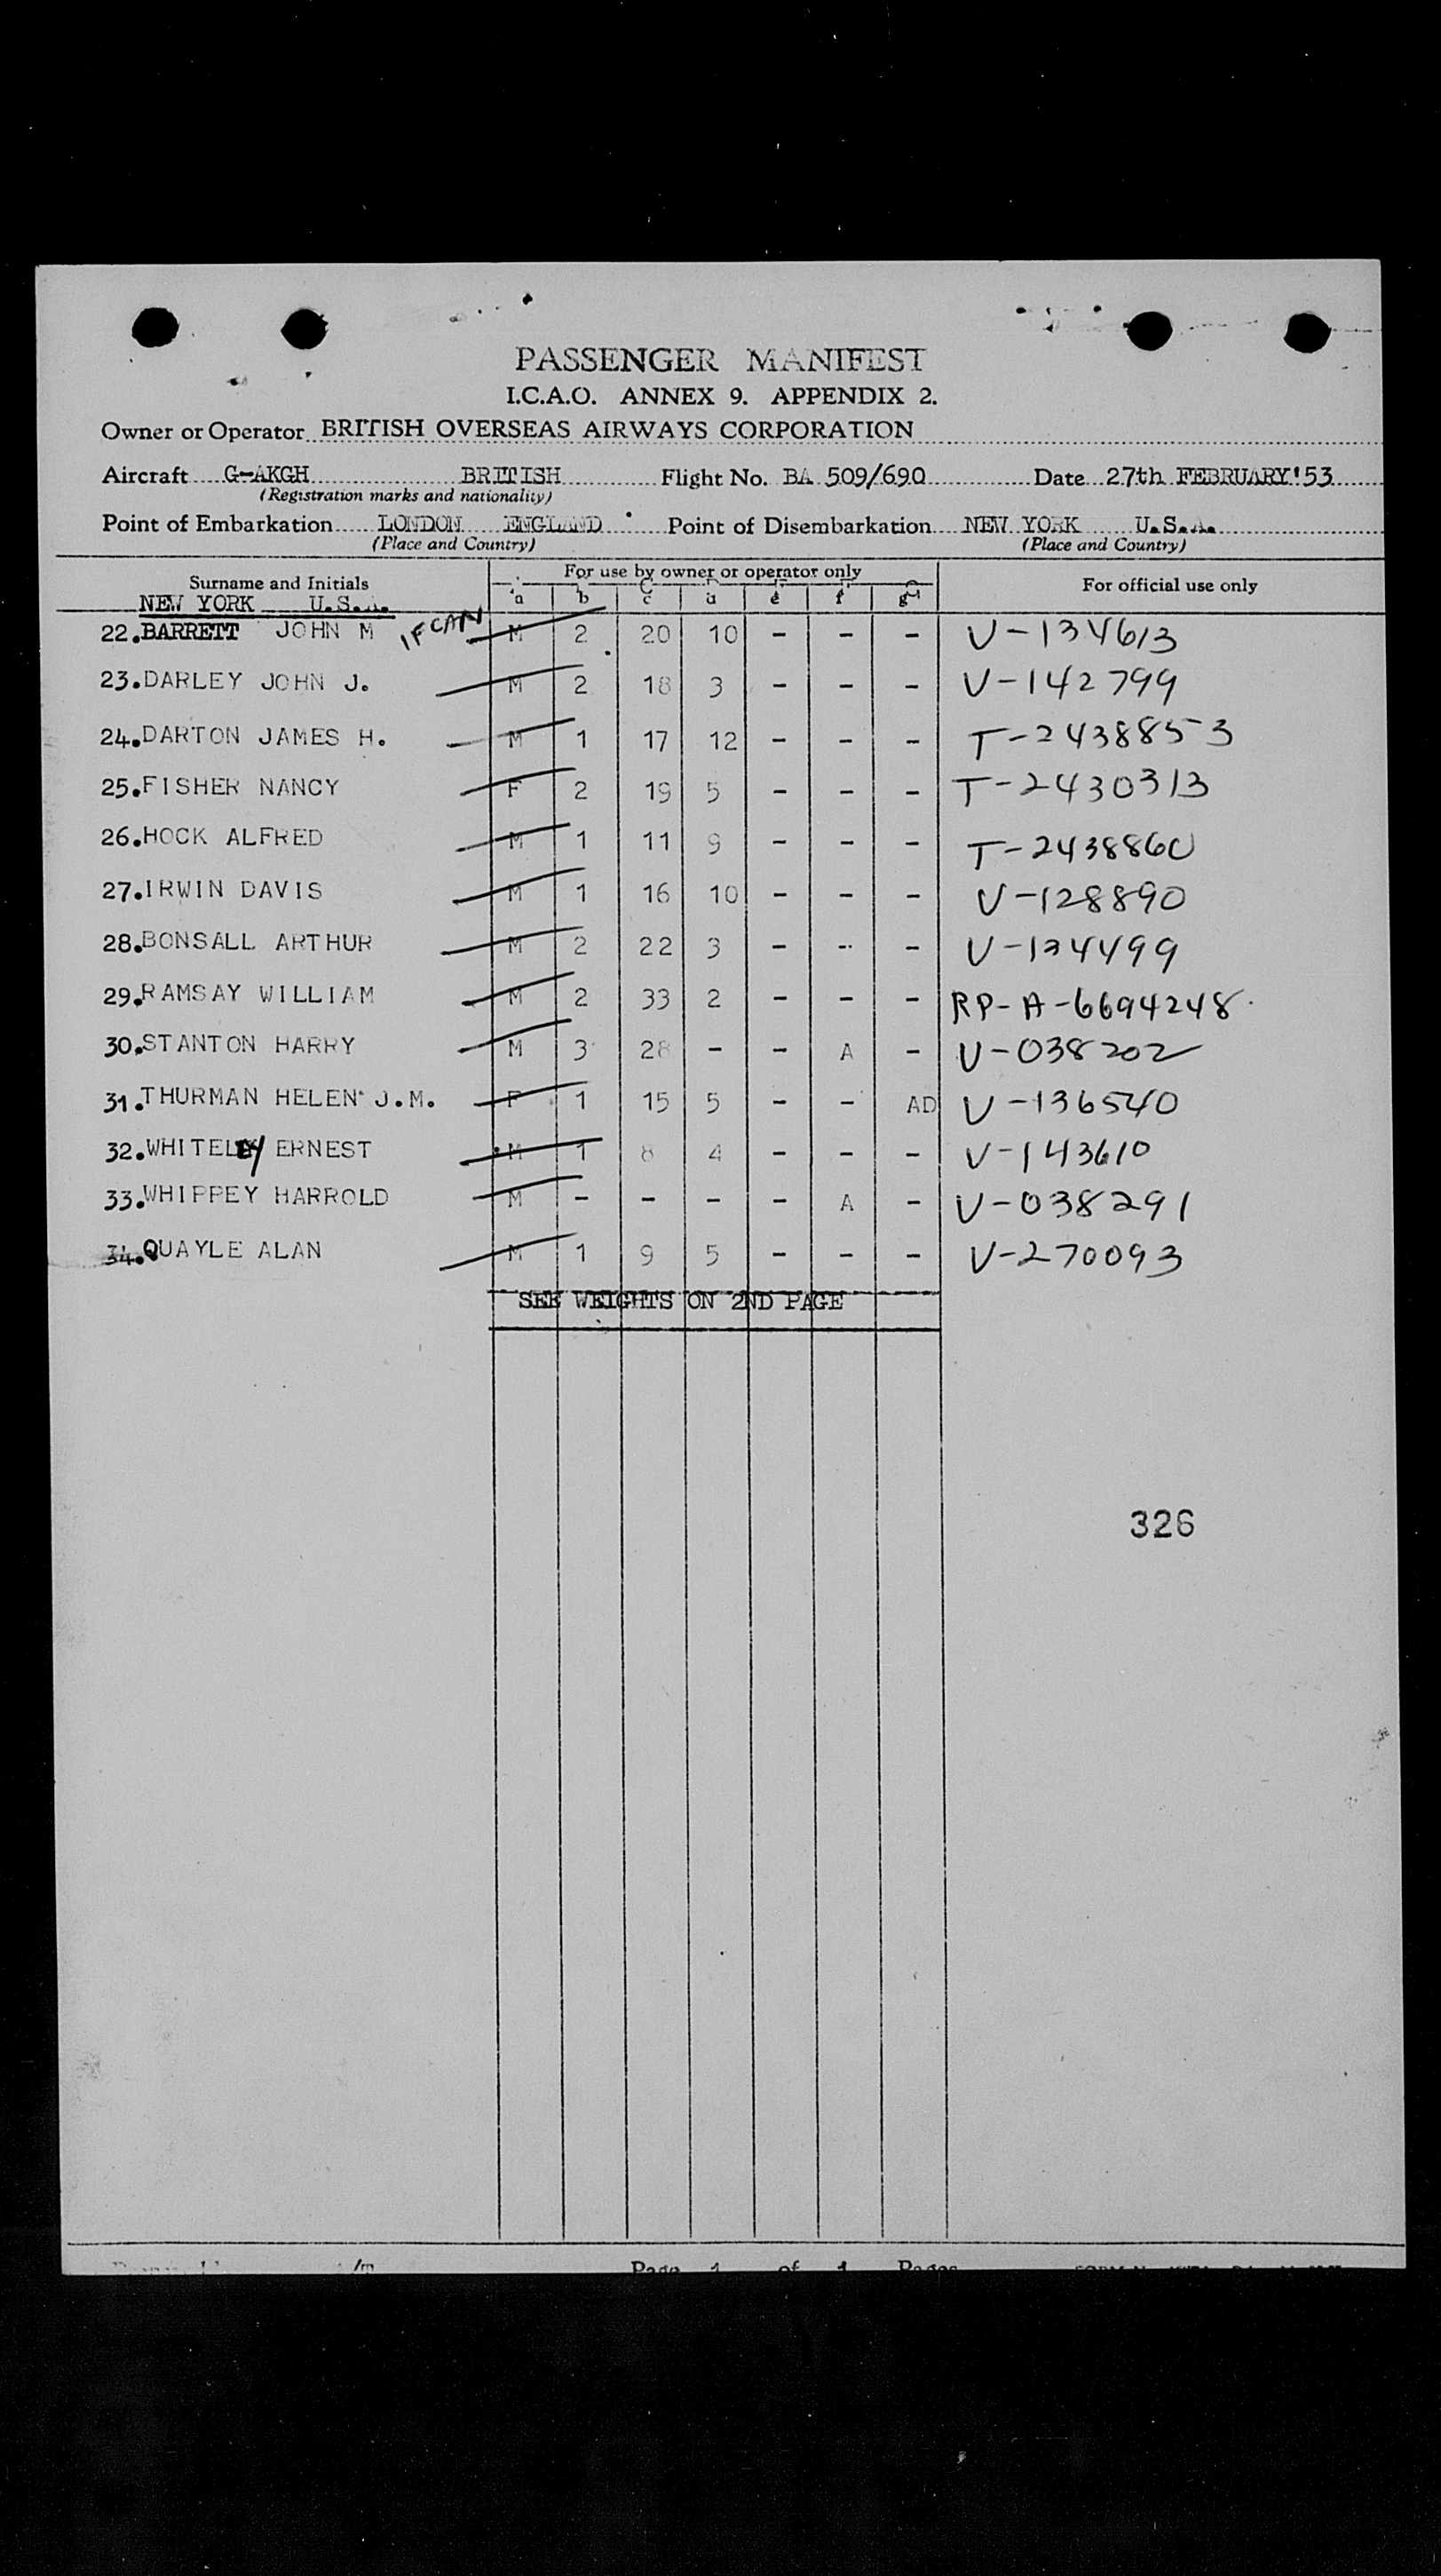 PASSENGER MANIFEST
I.C.A.O. ANNEX 9. APPENDIX 2.
Owner or Operator BRITISH OVERSEAS AIRWAYS CORPORATION
Aircraft G-AKGH BRITISH Flight No. BA 509/690 Date 27th FEBRUARY'53
(Registration marks and nationality)
Point of Embarkation LONDON ENGLAND Point of Disembarkation NEW YORK U.S.A.
(Place and Country) (Place and Country)
Surname and Initials For use by owner or operator only For official use only
NEW YORK U.S.A. a b c d e f g
22. BARRETT JOHN M IF CAN M 2 20 10 - - - V-134613
23. DARLEY JOHN J. M 2 18 3 - - - V-142799
24. DARTON JAMES H. M 1 17 12 - - - T-2438853
25. FISHER NANCY F 2 19 5 - - - T-2430313
26. HOCK ALFRED M 1 11 9 - - - T-2438860
27. IRWIN DAVIS M 1 16 10 - - - V-128890
28. BONSALL ARTHUR M 2 22 3 - - - V-134499
29. RAMSAY WILLIAM M 2 33 2 - - - RP-A-6694248
30. STANTON HARRY M 3 28 - - A - V-038202
31. THURMAN HELEN J.M. F 1 15 5 - - AD V-136540
32. WHITELEY ERNEST M 1 8 4 - - - V-143610
33. WHIPPEY HARROLD M - - - - A - V-038291
34. QUAYLE ALAN M 1 9 5 - - - V-270093
SEE WEIGHTS ON 2ND PAGE
326
Page 1 of 1 Pages